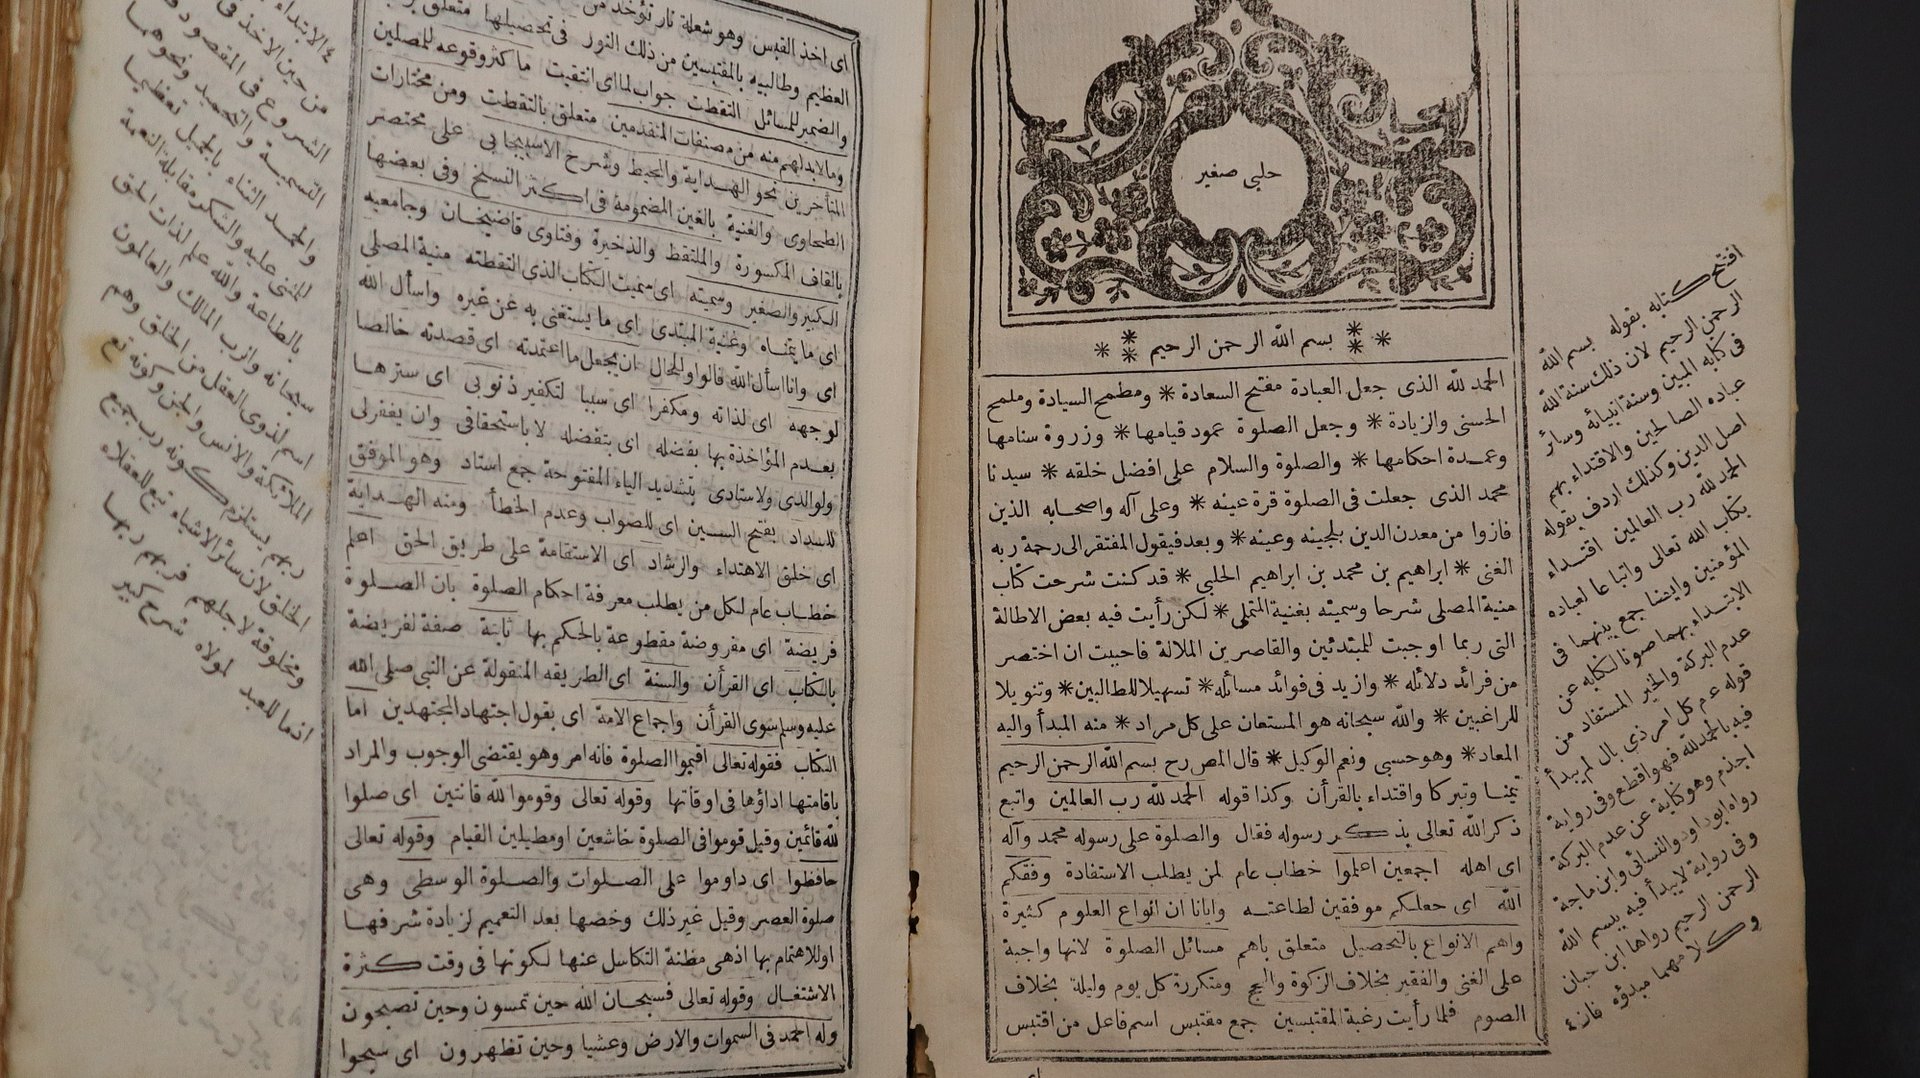 حلبى صغير
بسم الله الرحمن الرحيم
الحمد لله الذى جعل العبادة مفتح السعادة * ومطمح السيادة وملمح
الحسنى والزيادة * وجعل الصلوة عمود قيامها * وزروة سنامها
وعمدة احكامها * والصلوة والسلام على افضل خلقه * سيدنا
محمد الذى جعلت فى الصلوة قرة عينه * وعلى آله واصحابه الذين
فازوا من معدن الدين بلجينه وعينه * وبعد فيقول المفتقر الى رحمة ربه
الغنى * ابراهيم بن محمد بن ابراهيم الحلبى * قد كنت شرحت كتاب
منية المصلى شرحا وسميته بغنية المتملى * لكن رأيت فيه بعض الاطالة
التى ربما اوجبت للمبتدئين والقاصرين الملالة فاحببت ان اختصر
من فرائد دلائله * وازيد فى فوائد مسائله * تسهيلا للطالبين * وتنويلا
للراغبين * والله سبحانه هو المستعان على كل مراد * منه المبدأ واليه
المعاد * وهو حسبى ونعم الوكيل * قال المص رح بسم الله الرحمن الرحيم
تيمنا وتبركا واقتداء بالقرأن وكذا قوله الحمد لله رب العالمين واتبع
ذكر الله تعالى بذكر رسوله فقال والصلوة على رسوله محمد وآله
اى اهله اجمعين اعلموا خطاب عام لمن يطلب الاستفادة وفقكم
الله اى جعلكم موفقين لطاعته وايانا ان انواع العلوم كثيرة
واهم الانواع بالتحصيل متعلق باهم مسائل الصلوة لانها واجبة
على الغنى والفقير بخلاف الزكوة والحج ومتكررة كل يوم وليلة بخلاف
الصوم فلما رأيت رغبة المقتبسين جمع مقتبس اسم فاعل من اقتبس
افتتح كتابه بقوله بسم الله
الرحمن الرحيم لان ذلك سنة الله
فى كتابه المبين وسنة انبيائه وسائر
عباده الصالحين والاقتداء بهم
اصل الدين وكذلك اردف بقوله
الحمد لله رب العالمين اقتداء
بكتاب الله تعالى واتباعا لعباده
المؤمنين وايضا جمع بينهما فى
الابتداء بهما صونا لكتابه عن
عدم البركة والخير المستفاد من
قوله عم كل امر ذى بال لم يبدأ
فيه بالحمد لله فهو اقطع وفى رواية
اجذم وهو كناية عن عدم البركة
رواه ابو داود والنسائى وابن ماجة
وفى رواية لا يبدأ فيه ببسم الله
الرحمن الرحيم رواها ابن حبان
وكلامهما مبدؤه فان
اى
اى اخذ القبس وهو شعلة نار تؤخذ من
العظيم وطالبيه بالمقتبسين من ذلك النور فى تحصيلها متعلق
والضمير للمسائل التقطت جواب لما اى انتقيت ما كثر وقوعه للمصلين
وما لا بد لهم منه من مصنفات المتقدمين متعلق بالتقطت ومن مختارات
المتأخرين نحو الهداية والمحيط وشرح الاسبيجابى على مختصر
الطحاوى والغنية بالغين المضمومة فى اكثر النسخ وفى بعضها
بالقاف المكسورة والملتقط والذخيرة وفتاوى قاضيخان وجامعيه
الكبير والصغير وسميته اى سميت الكتاب الذى التقطته منية المصلى
اى ما يتمناه وغنية المبتدى اى ما يستغنى به عن غيره واسأل الله
اى وانا اسأل الله قالوا وللحال ان يجعل ما اعتمدته اى قصدته خالصا
لوجهه اى لذاته ومكفرا اى سببا لتكفير ذنوبى اى سترها
بعدم المؤاخذة بها بفضله اى بتفضله لا باستحقاقى وان يغفر لى
ولوالدى ولاستادى بتشديد الياء المفتوحة جمع استاد وهو الموفق
للسداد بفتح السين اى للصواب وعدم الخطأ ومنه الهداية
اى خلق الاهتداء والرشاد اى الاستقامة على طريق الحق اعلم
خطاب عام لكل من يطلب معرفة احكام الصلوة بان الصلوة
فريضة اى مفروضة مقطوعة بالحكم بها ثابتة صفة لفريضة
بالكتاب اى القرأن والسنة اى الطريقه المنقولة عن النبى صلى الله
عليه وسلم سوى القرأن واجماع الامة اى بقول اجتهاد المجتهدين اما
الكتاب فقوله تعالى اقيموا الصلوة فانه امر وهو يقتضى الوجوب والمراد
باقامتها اداؤها فى اوقاتها وقوله تعالى وقوموا لله قانتين اى صلوا
لله قائمين وقيل قوموا فى الصلوة خاشعين او مطيلين القيام وقوله تعالى
حافظوا اى داوموا على الصلوات والصلوة الوسطى وهى
صلوة العصر وقيل غير ذلك وخصها بعد التعميم لزيادة شرفها
او للاهتمام بها اذ هى مظنة التكاسل عنها لكونها فى وقت كثرة
الاشتغال وقوله تعالى فسبحان الله حين تمسون وحين تصبحون
وله الحمد فى السموات والارض وعشيا وحين تظهرون اى سبحوا
الابتداء
من حين الاخذ فى
الشروع فى المقصود
التسمية والتحميد ونحوهما
والحمد الثناء بالجميل تعظيما
للمثنى عليه والشكر مقابلة النعمة
بالطاعة والله علم لذات الحق
سبحانه والرب المالك والعالمون
اسم لذوى العقل من الخلق وهم
الملائكة والانس والجن وكونه تع
ربهم يستلزم كونه رب جميع
الخلق لان سائر الاشياء تبع للعقلاء
ومخلوقة لاجلهم فربهم ربها
اذ ما للعبد لمولاه شرح كبير